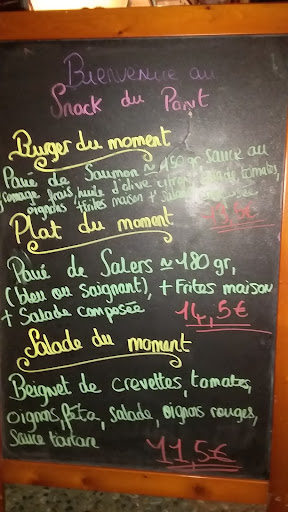 Bienvenue au
Snack du Pont
Burger du moment
Pavé de Saumon ≃ 150 gr, sauce au
fromage frais, huile d'olive citron, tomates,
oignons + frites maison + salade
13,5€
Plat du moment
Pavé de Salers ≃ 180 gr,
(bleu ou saignant), + Frites maison
+ Salade composée 14,5€
Salade du moment
Beignet de crevettes, tomates,
oignons, feta, salade, oignons rouges,
sauce tartare
11,5€